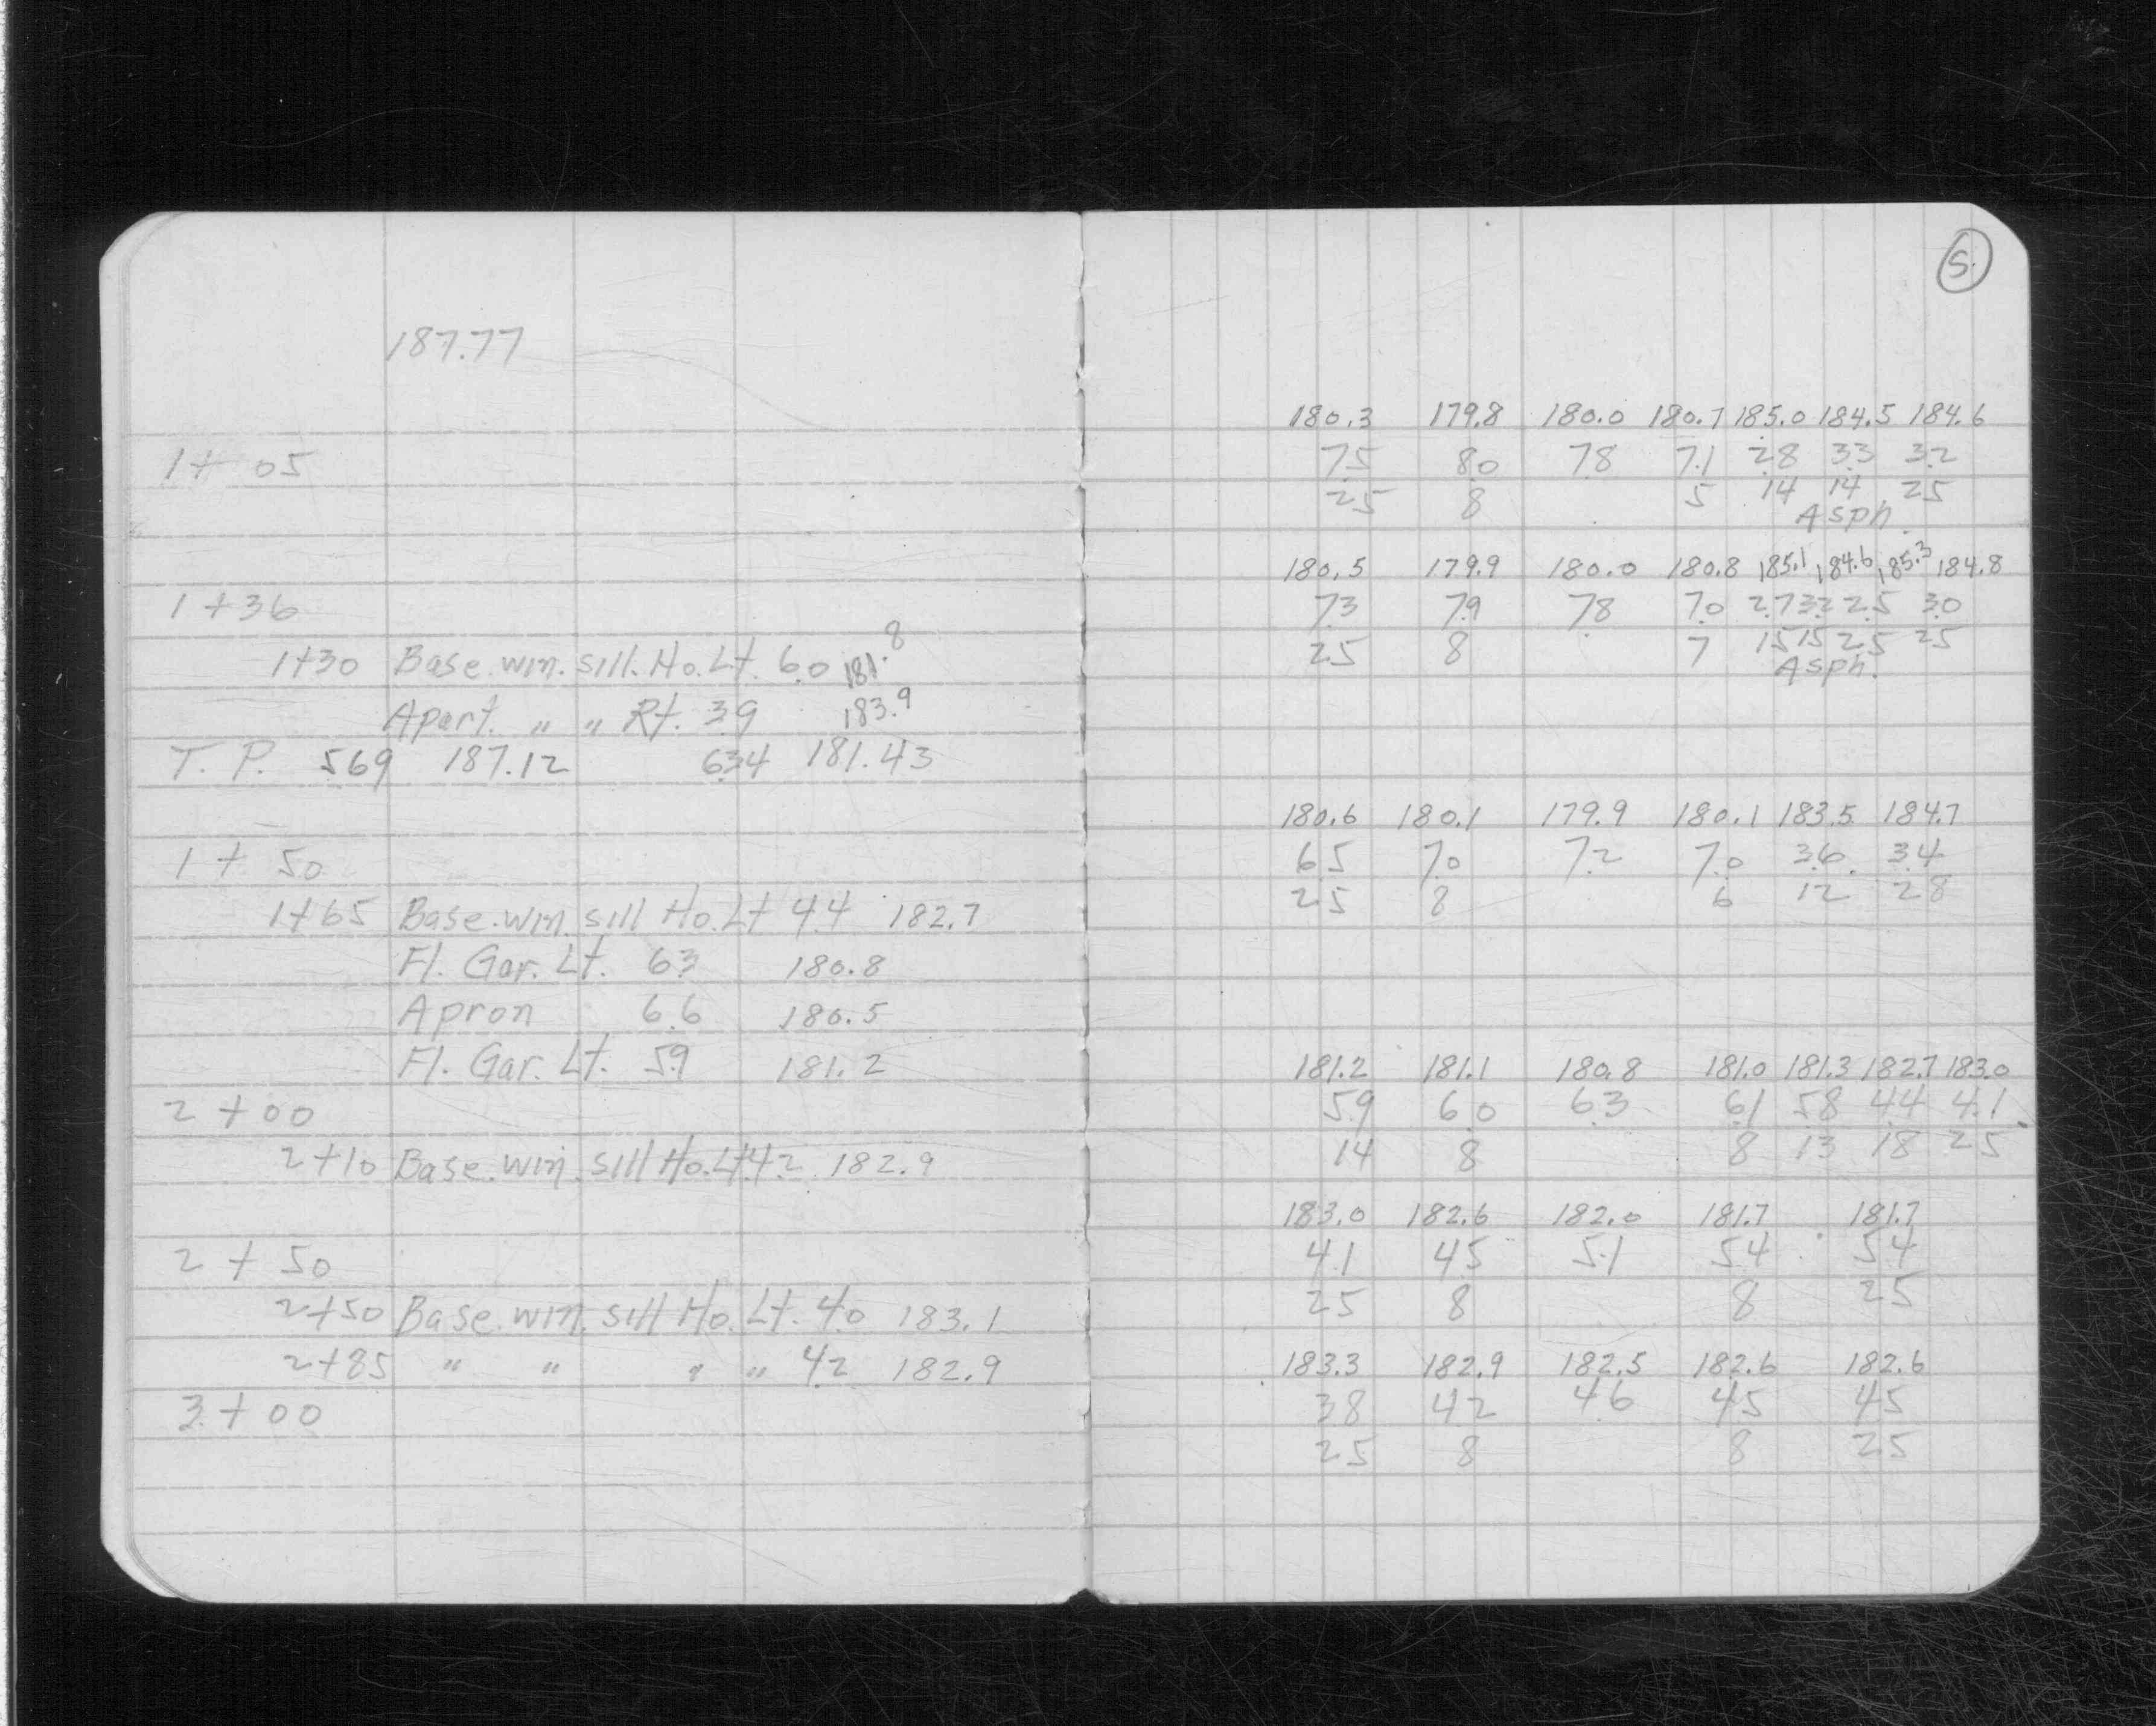 187.77
1+ 05
1+36
1+30 Base. win. sill. Ho. Lt. 6.0 181.8
Apart. " " Rt. 3.9 183.9
T. P. 5.69 187.12 6.34 181.43
1+ 50
1+65 Base. win. sill Ho. Lt 4.4 182.7
Fl. Gar. Lt. 6.3 180.8
Apron 6.6 180.5
Fl. Gar. Lt. 5.9 181.2
2 +00
2+10 Base. win. sill Ho. Lt 4.2 182.9
2 + 50
2+50 Base. win. sill Ho. Lt. 4.0 183.1
2+85 " " " " 4.2 182.9
3+00
5.
180.3 179.8 180.0 180.7 185.0 184.5 184.6
7.5 8.0 7.8 7.1 2.8 3.3 3.2
25 8 5 14 14 25
Asph.
180.5 179.9 180.0 180.8 185.1 184.6 185.3 184.8
7.3 7.9 7.8 7.0 2.7 3.2 2.5 3.0
25 8 7 15 15 25 25
Asph.
180.6 180.1 179.9 180.1 183.5 184.7
6.5 7.0 7.2 7.0 3.6 3.4
25 8 6 12 28
181.2 181.1 180.8 181.0 181.3 182.7 183.0
5.9 6.0 6.3 6.1 5.8 4.4 4.1
14 8 8 13 18 25
183.0 182.6 182.0 181.7 181.7
4.1 4.5 5.1 5.4 5.4
25 8 8 25
183.3 182.9 182.5 182.6 182.6
3.8 4.2 4.6 4.5 4.5
25 8 8 25